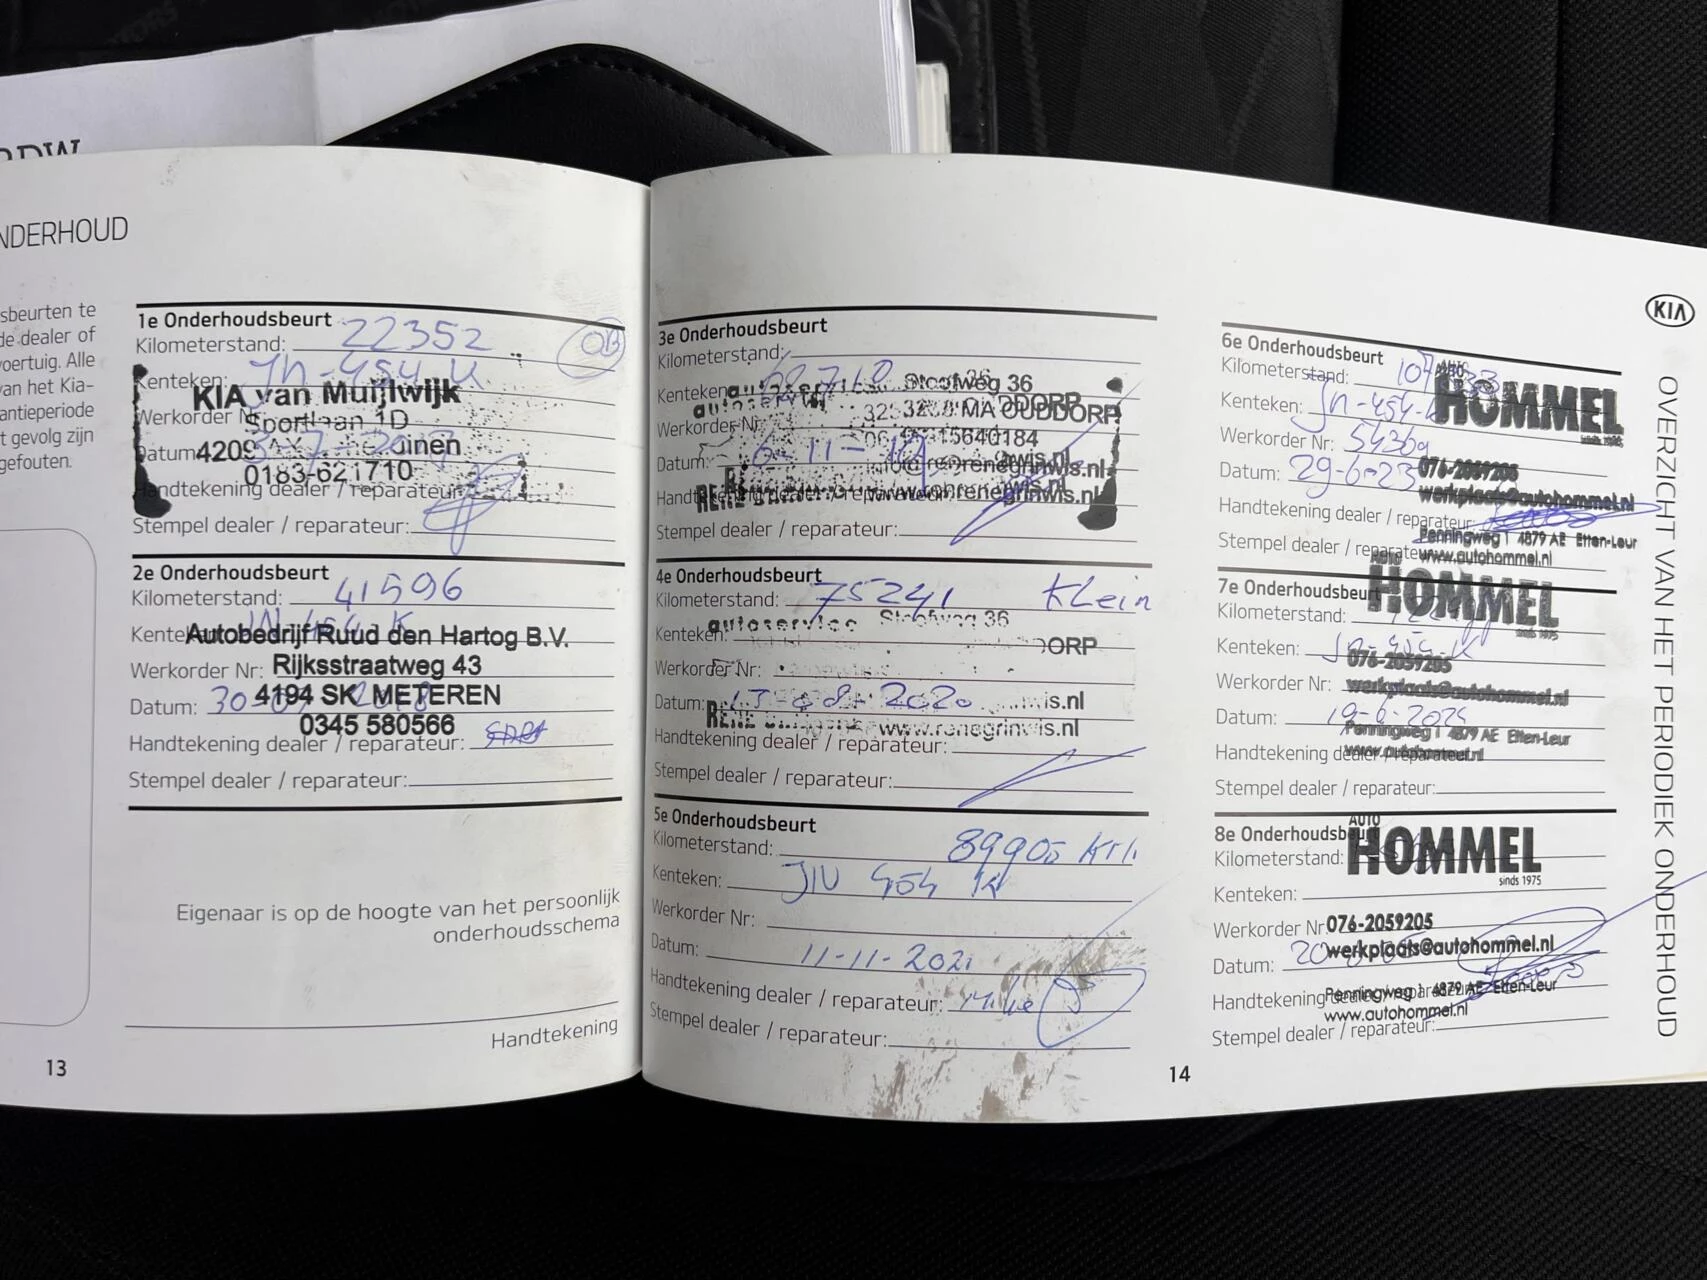 RDW
NDERHOUD
sbeurten te
de dealer of
voertuig. Alle
van het Kia-
antieperiode
t gevolg zijn
gefouten.
1e Onderhoudsbeurt
Kilometerstand: 22352
OB
Kenteken: Jn-454-K
KIA van Muijlwijk
Werkorder Nr
Sportlaan 1D
Datum
4209
uinen
0183-621710
Handtekening dealer / reparateur
Stempel dealer / reparateur:
2e Onderhoudsbeurt
Kilometerstand: 41596
Kenteken
Autobedrijf Ruud den Hartog B.V.
Werkorder Nr:
Rijksstraatweg 43
4194 SK METEREN
Datum: 30
0345 580566
Handtekening dealer / reparateur:
Stempel dealer / reparateur:
Eigenaar is op de hoogte van het persoonlijk
onderhoudsschema
Handtekening
13
3e Onderhoudsbeurt
Kilometerstand:
Kenteken
autoservice
Stoofweg 36
Werkorder Nr:
MA OUDDORP
15640184
Datum: 6-11-19
renegrinwis.nl
www.renegrinwis.nl
Stempel dealer / reparateur:
4e Onderhoudsbeurt
Kilometerstand: 75241 Klein
Kenteken:
autoservice Stoofweg 36
DORP
Werkorder Nr:
Datum: 13-08-2020
RENE
www.renegrinwis.nl
Handtekening dealer / reparateur:
Stempel dealer / reparateur:
5e Onderhoudsbeurt
Kilometerstand: 89900
Kenteken: JN 454 K
Werkorder Nr:
Datum: 11-11-2021
Handtekening dealer / reparateur:
Stempel dealer / reparateur:
14
KIA
6e Onderhoudsbeurt
Kilometerstand:
AUTO
HOMMEL
sinds 1975
Kenteken: Jn-454-K
Werkorder Nr: 54309
Datum: 29-6-23
076-2059205
werkplaats@autohommel.nl
Handtekening dealer / reparateur:
Penningweg 1 4879 AE Etten-Leur
Stempel dealer / reparateur
www.autohommel.nl
7e Onderhoudsbeurt
AUTO
HOMMEL
sinds 1975
Kilometerstand:
Kenteken: Jn-454-K
076-2059205
Werkorder Nr:
werkplaats@autohommel.nl
Datum: 19-6-2024
Penningweg 1 4879 AE Etten-Leur
Handtekening dealer / reparateur
Stempel dealer / reparateur:
8e Onderhoudsbeurt
AUTO
HOMMEL
sinds 1975
Kilometerstand:
Kenteken:
Werkorder Nr
076-2059205
werkplaats@autohommel.nl
Datum: 20
Handtekening
Penningweg 1 4879 AE Etten-Leur
www.autohommel.nl
Stempel dealer / reparateur:
OVERZICHT VAN HET PERIODIEK ONDERHOUD